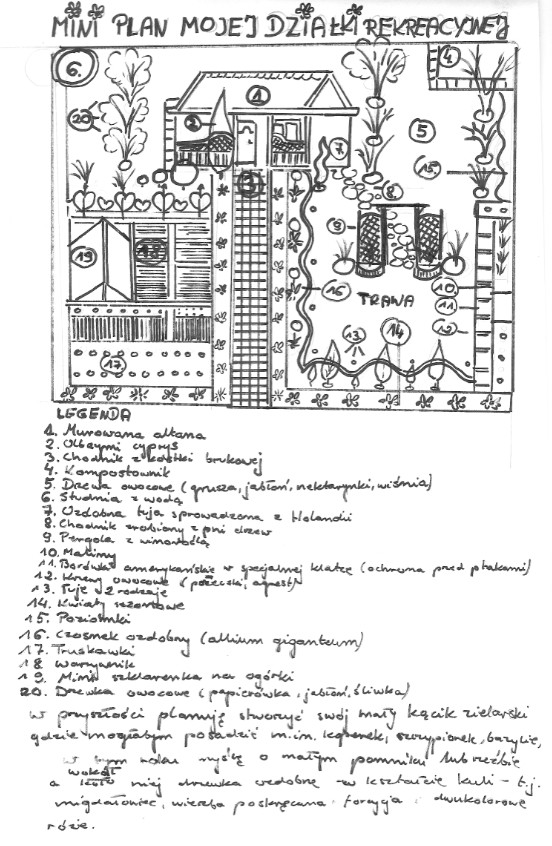 MINI PLAN MOJEJ DZIAŁKI REKREACYJNEJ
6.
4
20
1
2
5
3
7
15
8
9
19
18
16
10
11
12
TRAWA
13
14
17
LEGENDA
1. Murowana altana
2. Olbrzymi cyprys
3. Chodnik z kostki brukowej
4. Kompostownik
5. Drzewa owocowe (grusza, jabłoń, nektarynki, wiśnia)
6. Studnia z wodą
7. Ozdobna tuja sprowadzona z Holandii
8. Chodnik zrobiony z pni drzew
9. Pergola z winoroślą
10. Maliny
11. Borówki amerykańskie w specjalnej klatce (ochrona przed ptakami)
12. Krzewy owocowe (porzeczki, agrest)
13. Tuje 2 rodzaje
14. Kwiaty sezonowe
15. Poziomki
16. Czosnek ozdobny (allium giganteum)
17. Truskawki
18 Warzywnik
19. Mini szklarenka na ogórki
20. Drzewka owocowe (papierówka, jabłoń, śliwka)
W przyszłości planuję stworzyć swój mały kącik zielarski
gdzie mogłabym posadzić m.in.
myślę o małym pomniku lub rzeźbie
wokół
a niej drzewka ozdobne w kształcie kuli - t.j.
migdałowiec, wierzba poskręcana forsycja i dwukolorowe
róże.